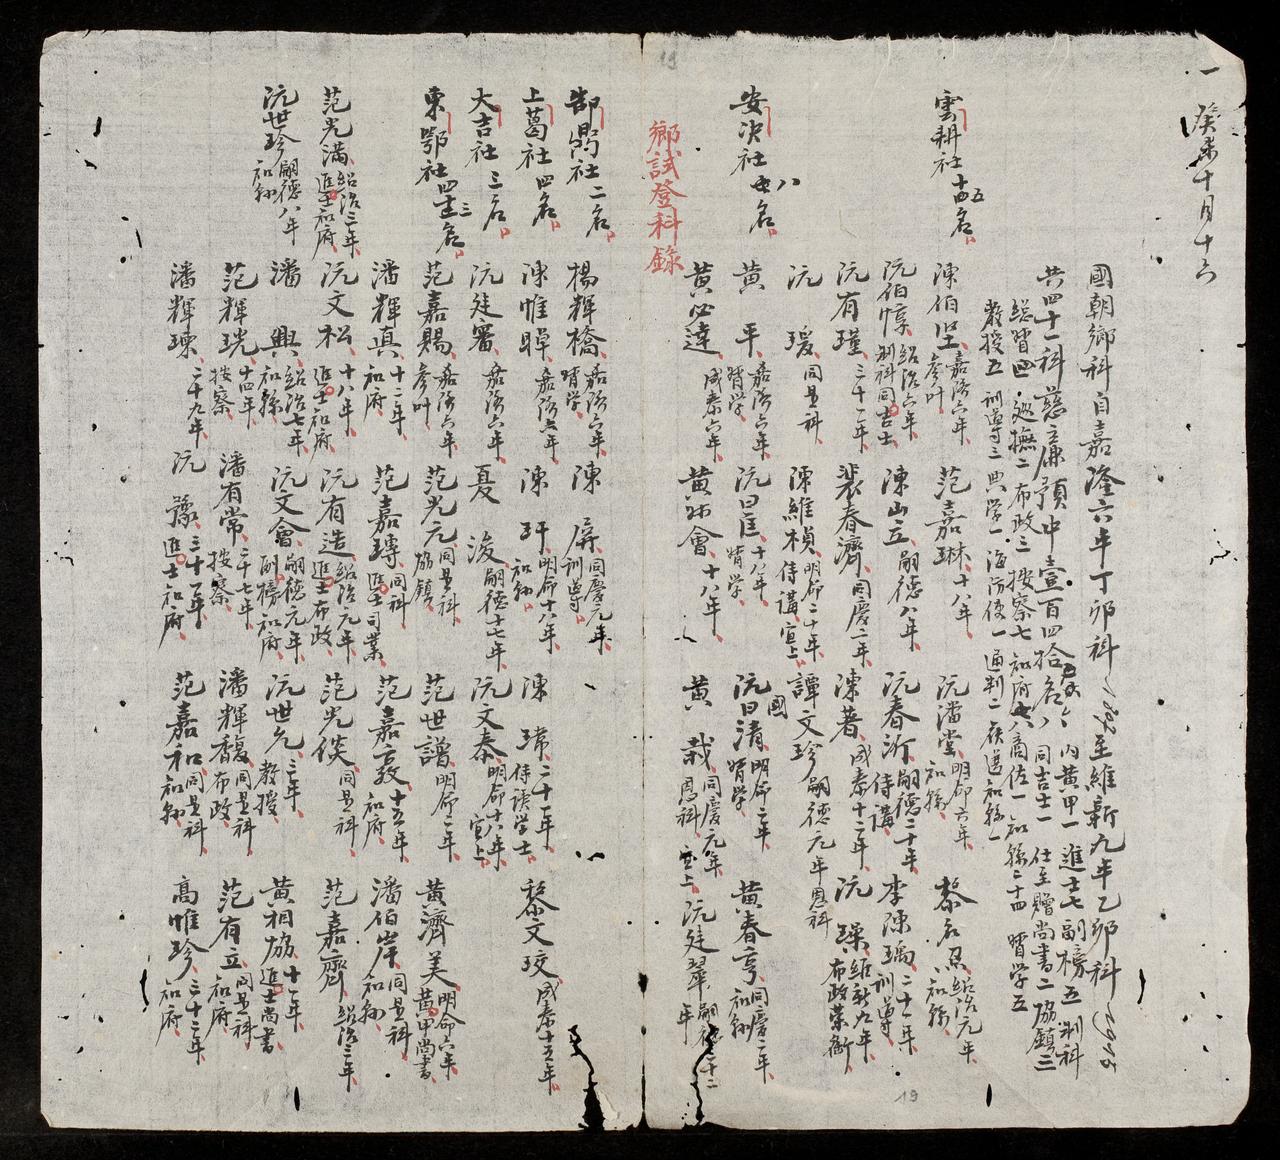 一 癸未十月十六
國朝鄉科自嘉隆六年丁卯科 1807 至維新九年乙卯科 1915
共四十一科慈廉預中壹百四拾名八六 內黃甲一 進士七 副榜五 制科
同吉士一 仕至贈尚書二 協鎮三
總督四 巡撫二 布政三 按察七 知府八 商佐一 知縣二十四 督学五
教授五 訓導三 典学一 海防使一 通判二 候選知縣一
雲耕社 十四五名
陳伯堅 嘉隆六年 參叶
范嘉琳 十八年
阮潘堂 明命六年 知縣
黎名 紹治元年 知縣
阮伯惇 紹治六年 制科同吉士
陳山立 嗣德八年
阮春沂 嗣德二十年 侍講
李陳瑀 二十一年 訓導
阮有瑾 三十一年
裴春濟 同慶二年
陳著 成泰十二年
阮璪 維新九年 布政榮銜
阮瑗 同是科
陳維楨 明命二十年 侍講 宜上
譚文珍 嗣德元年恩科
安決社 八名
黄平 嘉隆六年 督学
阮曰匡 十八年 督学
阮曰清 國 明命二年 督学
黄春亨 同慶二年 知縣
黄必達 成泰六年
黄 會 十八年
黄栽 同慶元年 恩科 宜上
阮廷翠 嗣德二十二年
鄉試登科錄
郜鼎社 二名
楊輝橋 嘉隆六年 督学
陳屏 同慶元年 訓導
上葛社 四名
陳惟暭 嘉隆六年
陳玕 明命十八年 知縣
陳瑺 二十一年 侍讀学士
黎文玟 成泰十五年
大吉社 三名
阮廷審 嘉隆六年
夏浚 嗣德十七年
阮文泰 明命十八年 宜上
東鄂社 四 三名
范嘉賜 嘉隆六年 參叶
范光元 同是科 協鎮
范世譄 明命二年
黄濟美 明命六年 黄甲尚書
潘輝真 十二年 知府
范嘉 同科 進士司業
范嘉 十五年 知府
潘伯岸 同是科 知縣
范光滿 紹治三年 進士知府
阮文松 十八年 進士知府
阮有造 紹治元年 進士布政
范光倓 同是科
范嘉齊 紹治二年
阮世珍 嗣德八年 知縣
潘興 紹治七年 知縣
阮文會 嗣德元年 副榜知府
阮世允 三年 教授
黄相協 十一年 進士尚書
范輝珖 十四年 按察
潘有常 二十七年 按察
潘輝馥 同是科 布政
范有立 同是科 知府
潘輝瑓 二十九年
阮豫 三十一年 進士知府
范嘉和 同是科 知縣
高惟珍 三十二年 知府
19
19